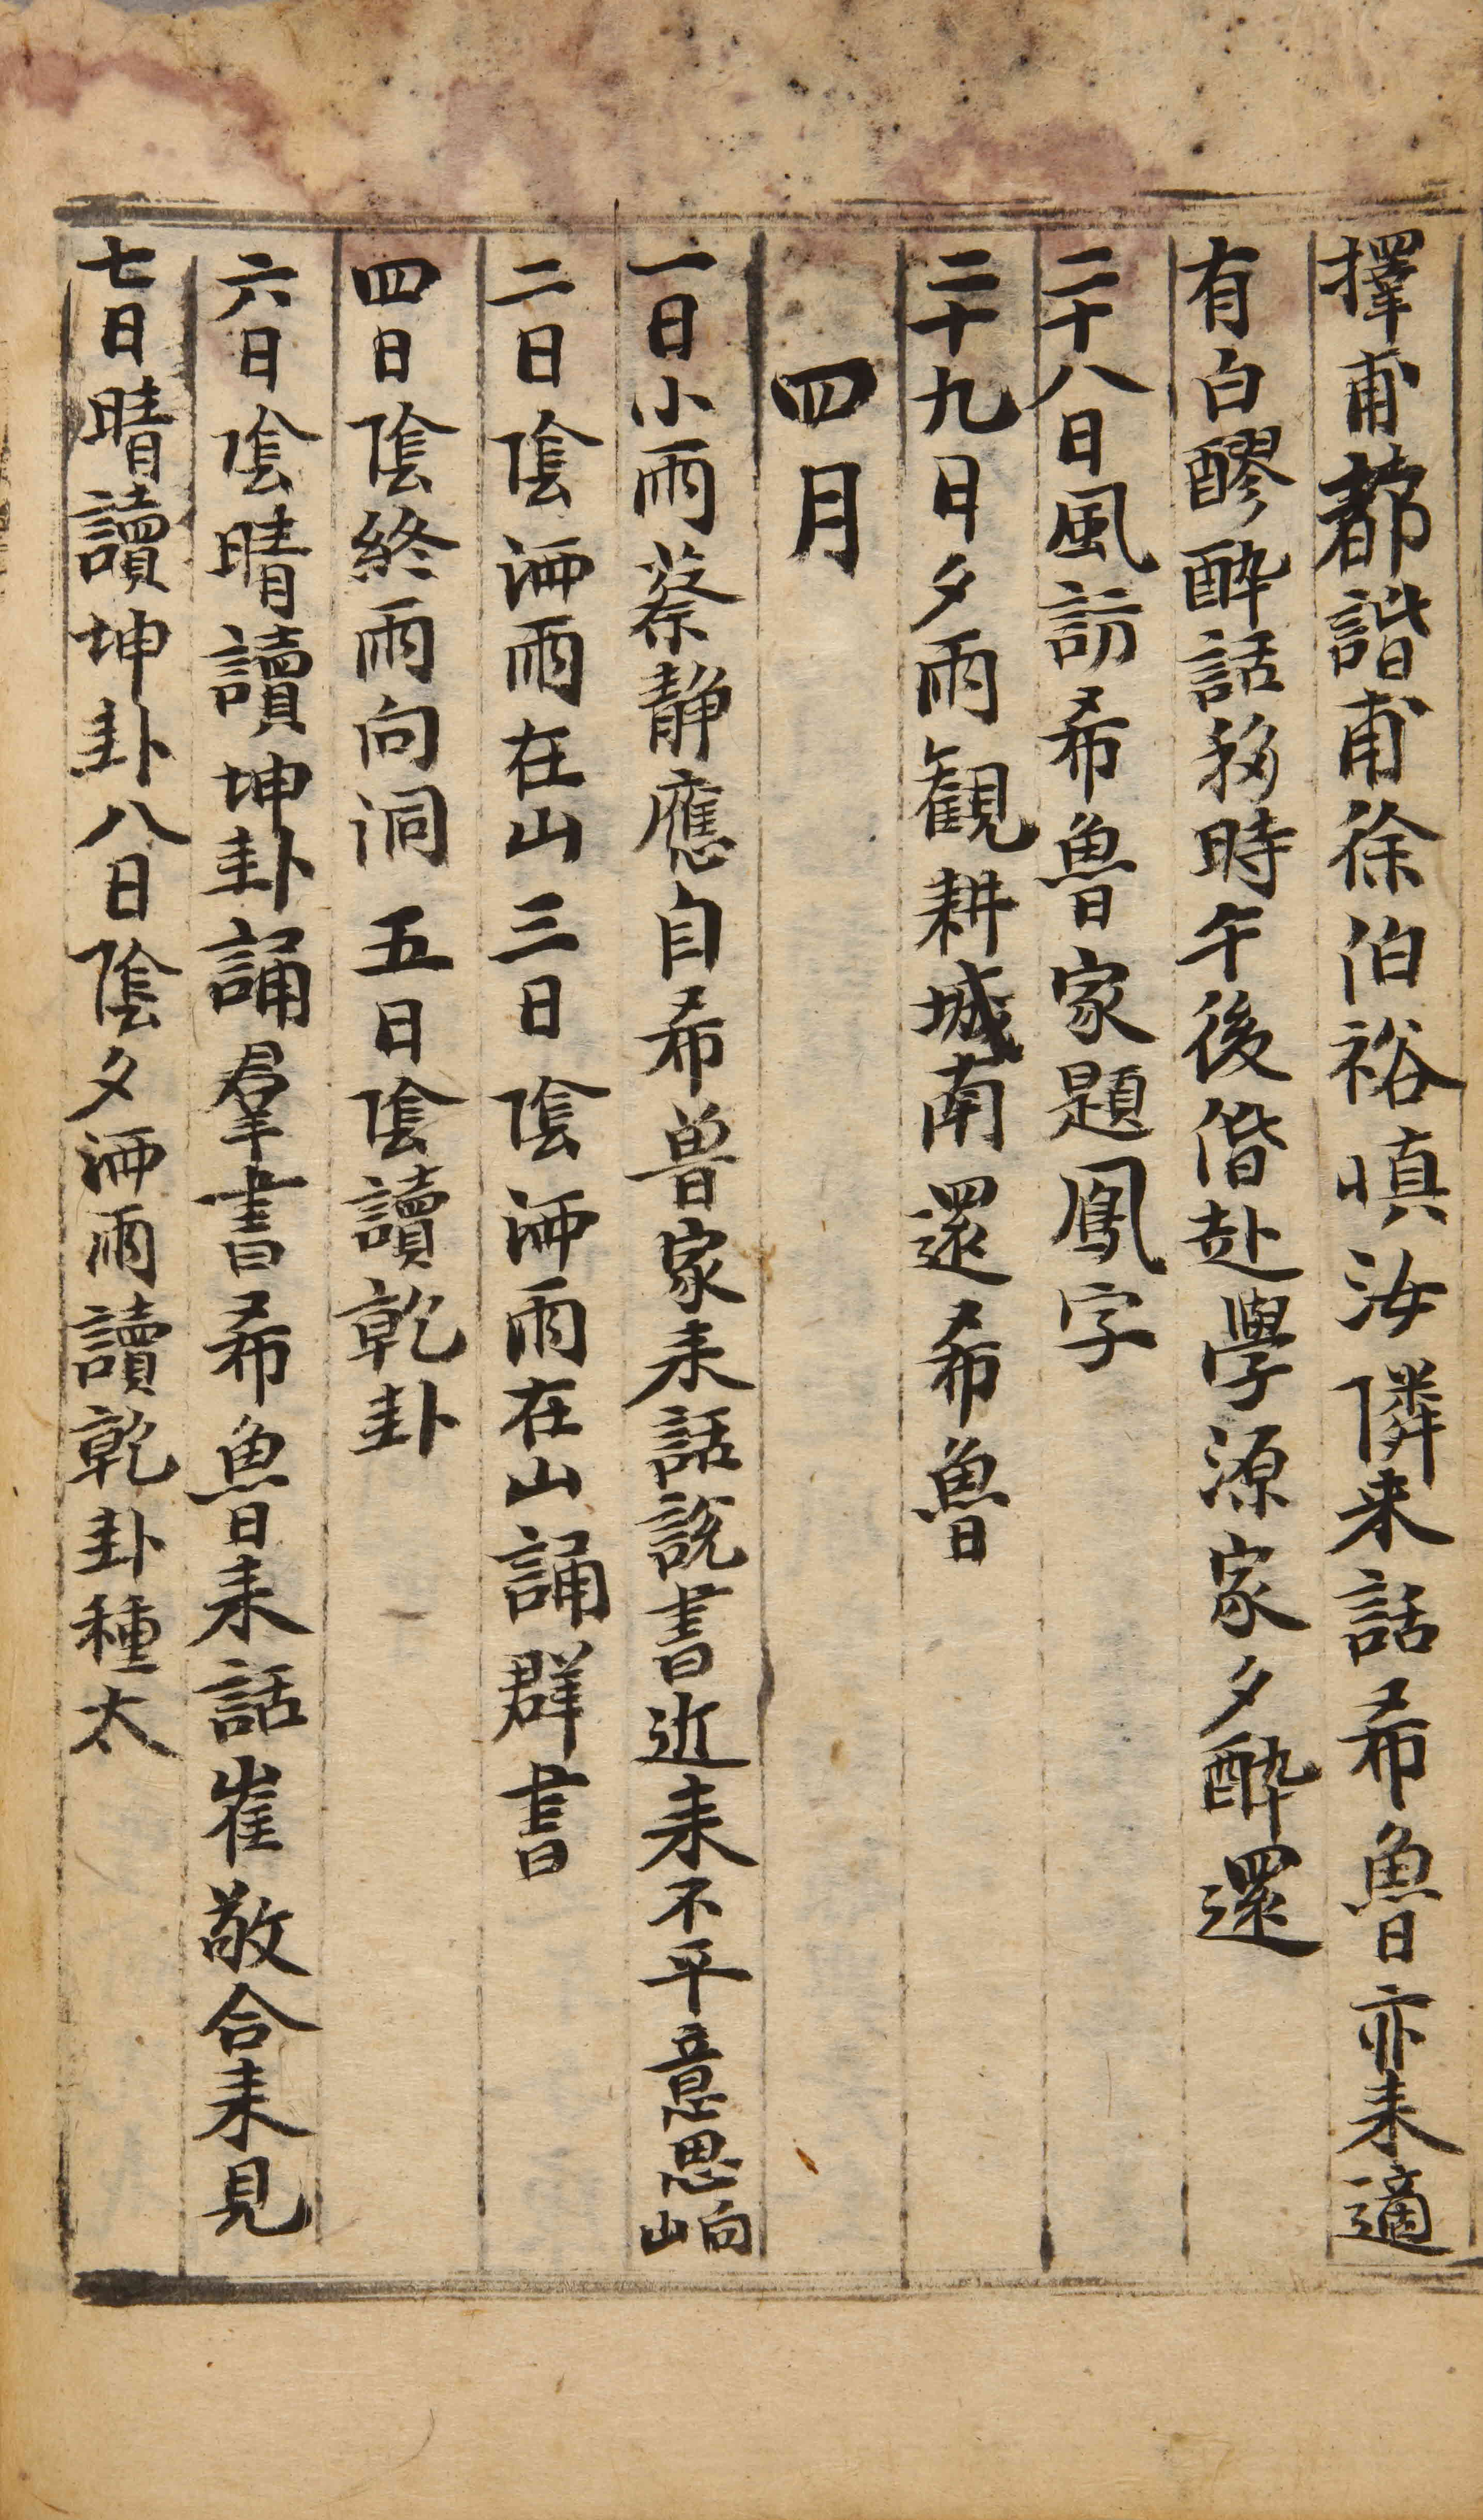 擇甫都諧甫徐伯裕愼汝隣来話希魯亦来適
有白醪酔話移時午後偕赴學源家夕酔還
二十八日風訪希魯家題鳳字
二十九日夕雨観耕城南還希魯
四月
一日小雨蔡静應自希曽家来話說書近来不平意思向山
二日陰洒雨在山三日陰洒雨在山誦群書
四日陰終雨向洞五日陰讀乾卦
六日陰晴讀坤卦誦羣書希魯来話崔敬合来見
七日晴讀坤卦八日陰夕洒雨讀乾卦種太